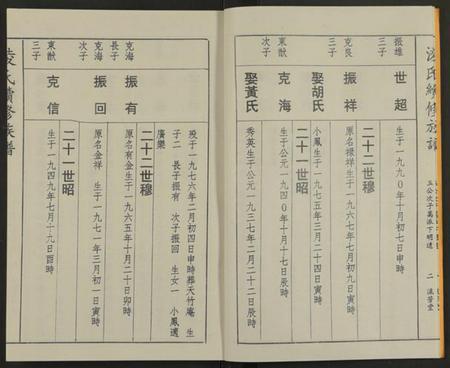 凌氏續修族譜
五公次子萬派下明選
二
流芳堂
振雄
三子
世超
生于一九九〇年十月初七日申時
二十二世穆
克良
三子
振祥
原名祿祥 生于一九六七年七月初九日寅時
娶胡氏
小鳳生于一九七五年三月二十四日寅時
東猷
次子
克海
生于公元一九四〇年十月十七日辰時
娶黃氏
秀英生于公元一九三七年二月二十二日辰時
歿于一九七六年二月初四日申時葬天竹庵 生
子二 長子振有 次子振回 生女一 小鳳適
廣樂
二十二世穆
克海
長子
振有
原名有金生于一九六五年十月二十日卯時
克海
次子
振回
原名金祥 生于一九七一年三月初一日寅時
二十一世昭
東猷
三子
克信
生于一九四九年七月十九日酉時
凌氏續修族譜